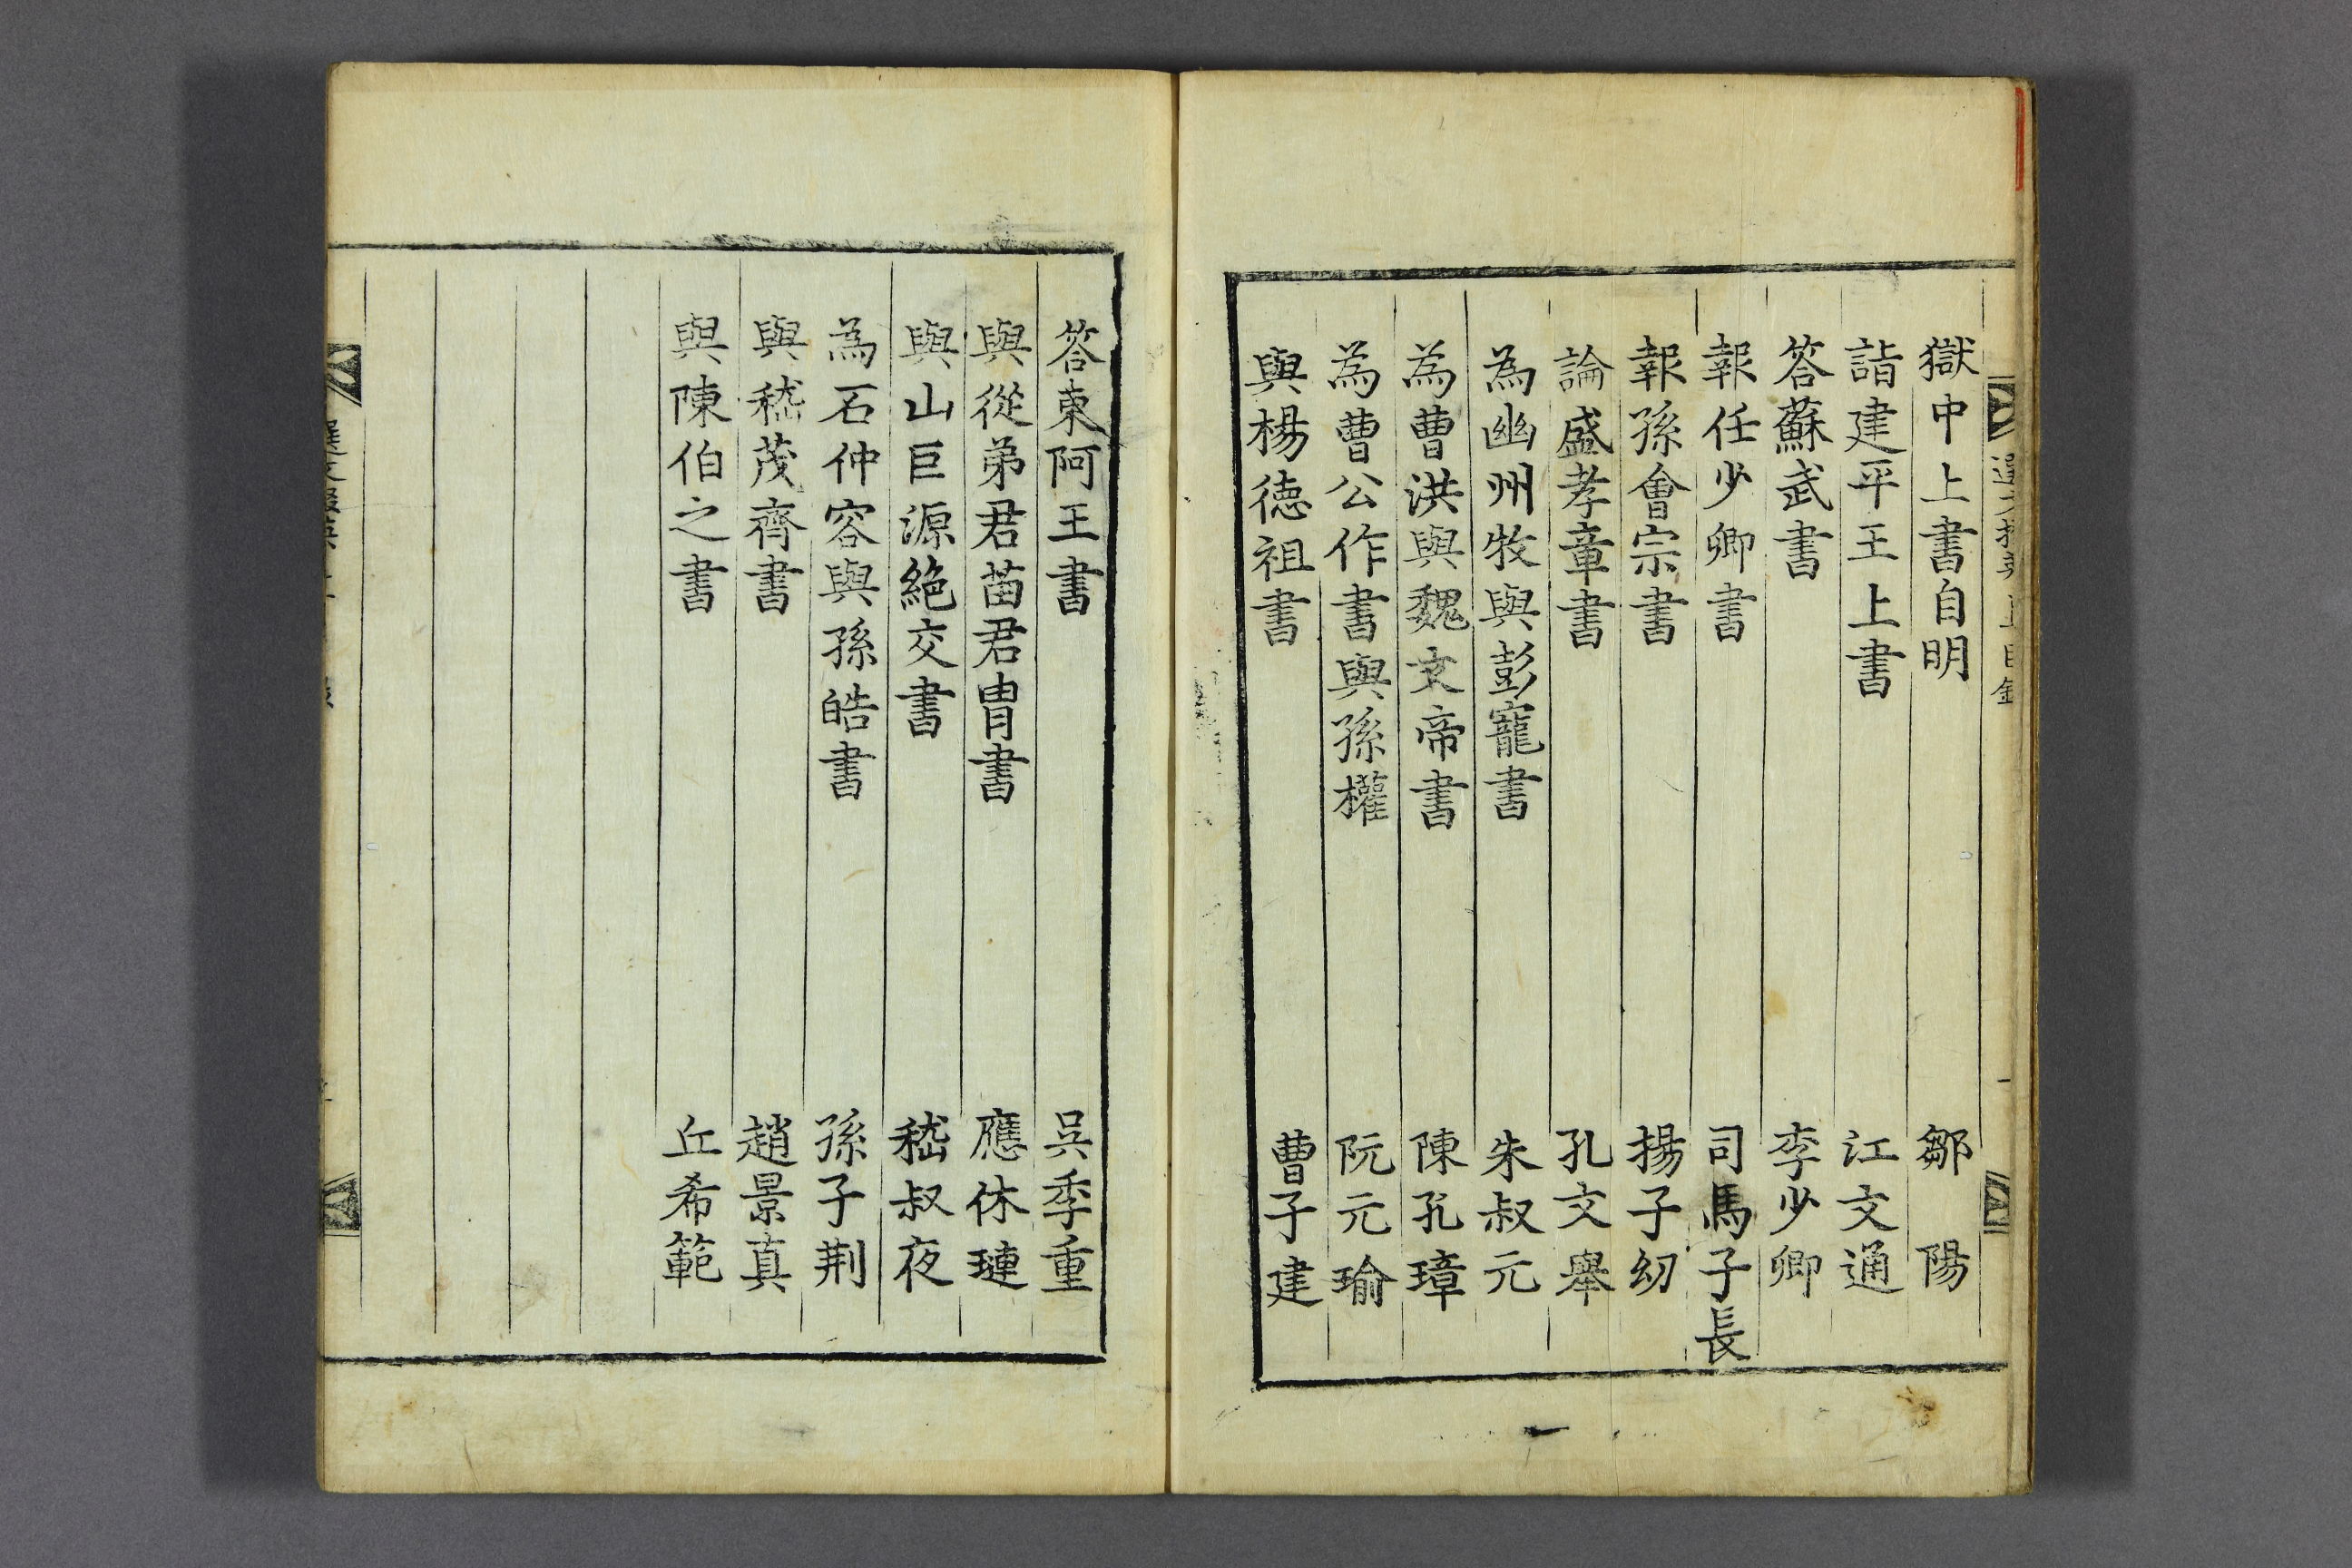 獄中上書自明 鄒陽
詣建平王上書 江文通
答蘇武書 李少卿
報任少卿書 司馬子長
報孫會宗書 揚子幼
論盛孝章書 孔文舉
為幽州牧與彭寵書 朱叔元
為曹洪與魏文帝書 陳孔璋
為曹公作書與孫權 阮元瑜
與楊德祖書 曹子建
答東阿王書 吳季重
與從弟君苗君冑書 應休璉
與山巨源絕交書 嵇叔夜
為石仲容與孫皓書 孫子荆
與嵇茂齊書 趙景真
與陳伯之書 丘希範